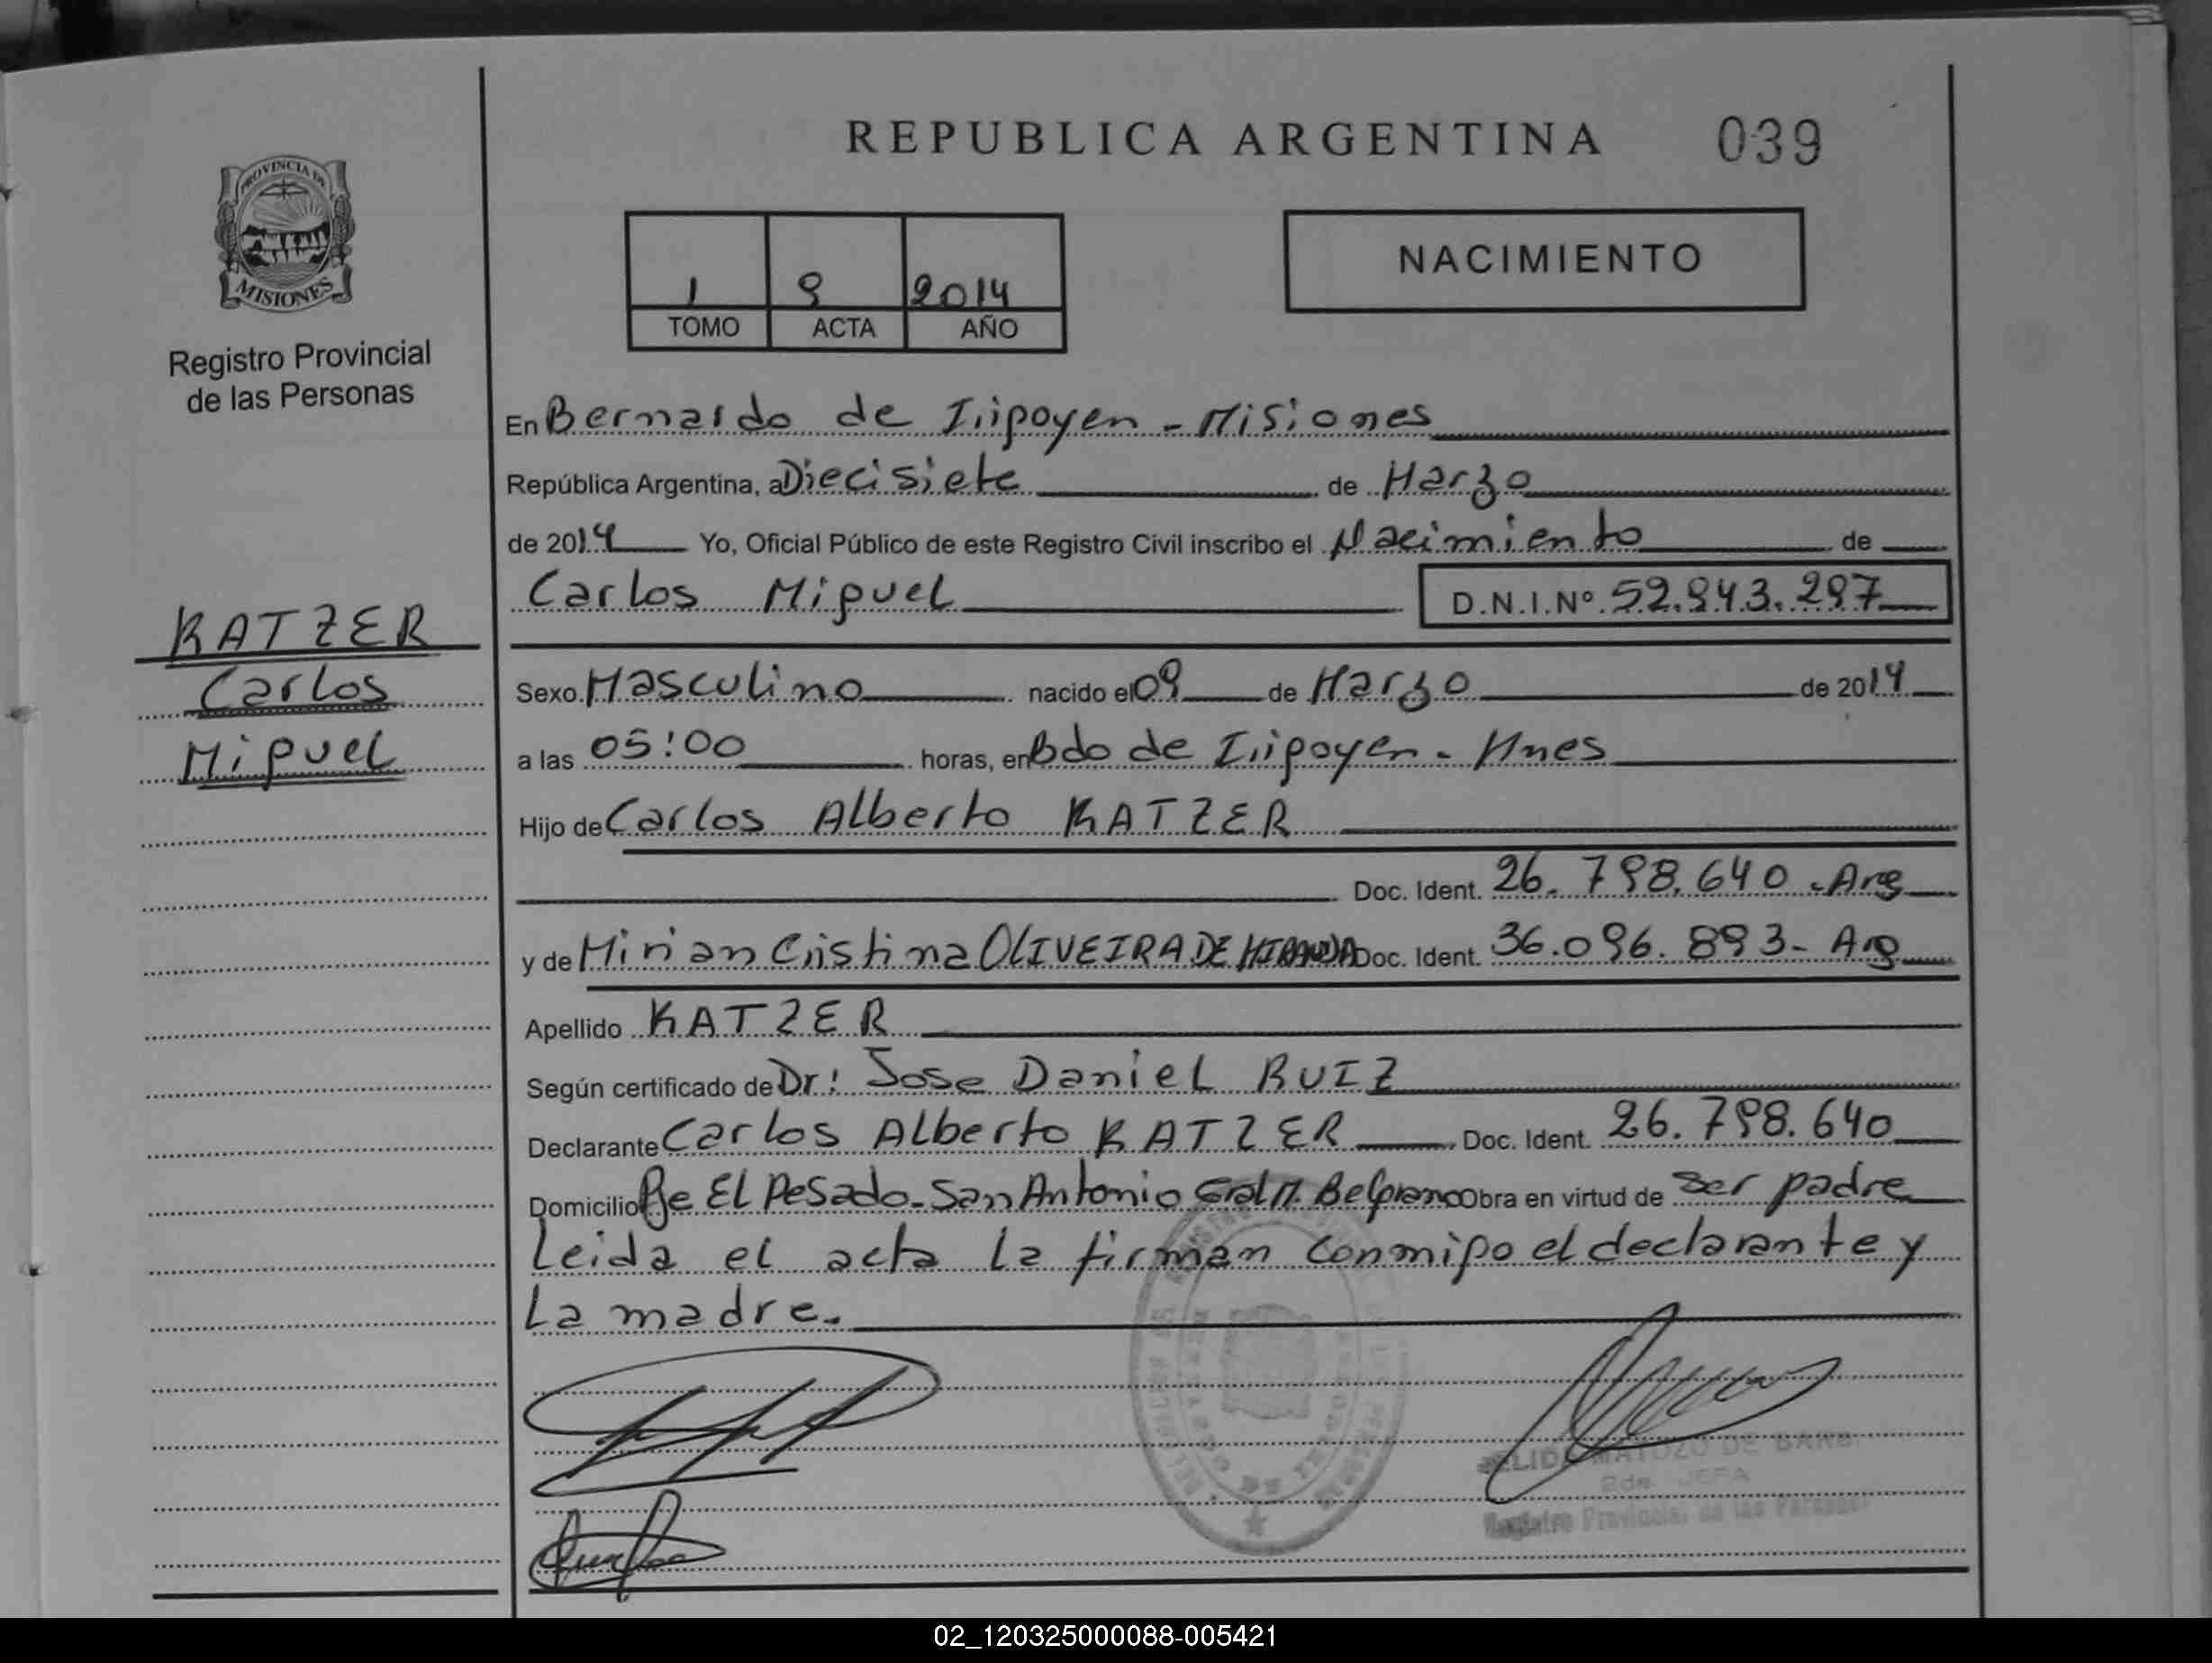 REPUBLICA ARGENTINA 039
PROVINCIA DE
MISIONES
Registro Provincial
de las Personas
1 9 2014
TOMO ACTA AÑO
NACIMIENTO
En Bernardo de Irigoyen - Misiones
República Argentina, a Diecisiete de Marzo
de 2014 Yo, Oficial Público de este Registro Civil inscribo el Nacimiento de
Carlos Miguel D.N.I.Nº 52.943.297
KATZER
Carlos
Miguel
Sexo Masculino nacido el 09 de Marzo de 2014
a las 05:00 horas, en Bdo de Irigoyen - Mnes
Hijo de Carlos Alberto KATZER
Doc. Ident. 26.798.640 - Arg
y de Mirian Cristina OLIVEIRA DE MIRANDA Doc. Ident. 36.096.893 - Arg
Apellido KATZER
Según certificado de Dr: Jose Daniel RUIZ
Declarante Carlos Alberto KATZER Doc. Ident. 26.798.640
Domicilio Pje El Pesado - San Antonio Gral M. Belgrano Obra en virtud de ser padre
Leida el acta la firman conmigo el declarante y
La madre.
MATOZO DE
JEFA
Registro Provincial de las Personas
02_120325000088-005421